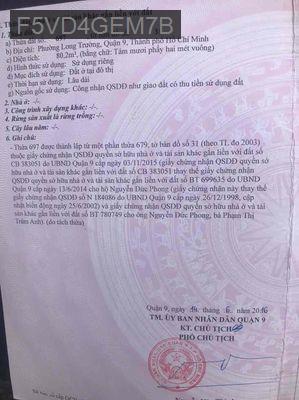 F5VD4GEM7B
sản khác gắn liền với đất
a) Thửa đất số: 697
b) Địa chỉ: Phường Long Trường, Quận 9, Thành phố Hồ Chí Minh
c) Diện tích: 80,2m², (bằng chữ: Tám mươi phẩy hai mét vuông)
d) Hình thức sử dụng: Sử dụng riêng
đ) Mục đích sử dụng: Đất ở tại đô thị
e) Thời hạn sử dụng: Lâu dài
g) Nguồn gốc sử dụng: Công nhận QSDĐ như giao đất có thu tiền sử dụng đất
2. Nhà ở: -/-.
3. Công trình xây dựng khác: -/-.
4. Rừng sản xuất là rừng trồng: -/-.
5. Cây lâu năm: -/-.
6. Ghi chú:
- Thửa 697 được thành lập từ một phần thửa 679, tờ bản đồ số 31 (theo TL đo 2003)
thuộc giấy chứng nhận QSDĐ quyền sở hữu nhà ở và tài sản khác gắn liền với đất số
CB 383051 do UBND Quận 9 cấp ngày 03/11/2015 (giấy chứng nhận QSDĐ quyền sở
hữu nhà ở và tài sản khác gắn liền với đất số CB 383051 thay thế giấy chứng nhận
QSDĐ quyền sở hữu nhà ở và tài sản khác gắn liền với đất số BT 699635 do UBND
Quận 9 cấp ngày 13/6/2014 cho hộ Nguyễn Đức Phong (giấy chứng nhận này thay thế
giấy chứng nhận QSDĐ số N 184086 do UBND Quận 9 cấp ngày 26/12/1998, cập
nhật biến động ngày 25/6/2002) và giấy chứng nhận QSDĐ quyền sở hữu nhà ở và tài
sản khác gắn liền với đất số BT 780749 cho ông Nguyễn Đức Phong, bà Phạm Thị
Trâm Anh). (do tách thửa)
Quận 9, ngày tháng 6 năm 2016
TM. ỦY BAN NHÂN DÂN QUẬN 9
KT. CHỦ TỊCH
PHÓ CHỦ TỊCH